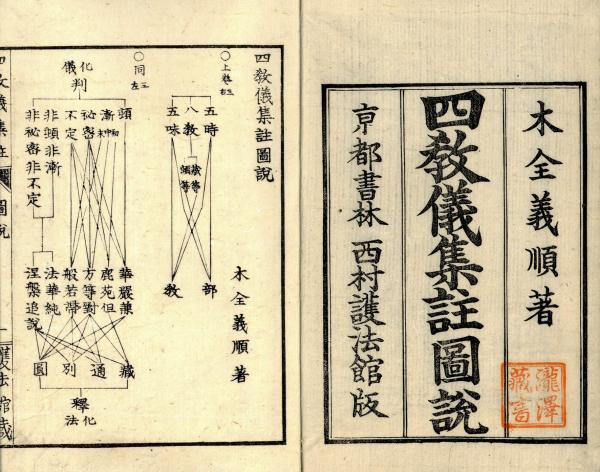 木全義順著
四教儀集註圖說
京都書林 西村護法館版
瀧澤
藏書
四教儀集註圖說
木全義順著
○上卷
五時
八教
五味
部
教
○同
化儀
判
頓
漸
祕密
不定
非頓非漸
非祕密非不定
華嚴兼
鹿苑但
方等對
般若帶
法華純
涅槃追說
藏
通
別
圓
釋
化法
四教儀集註
圖說
一
護法館藏